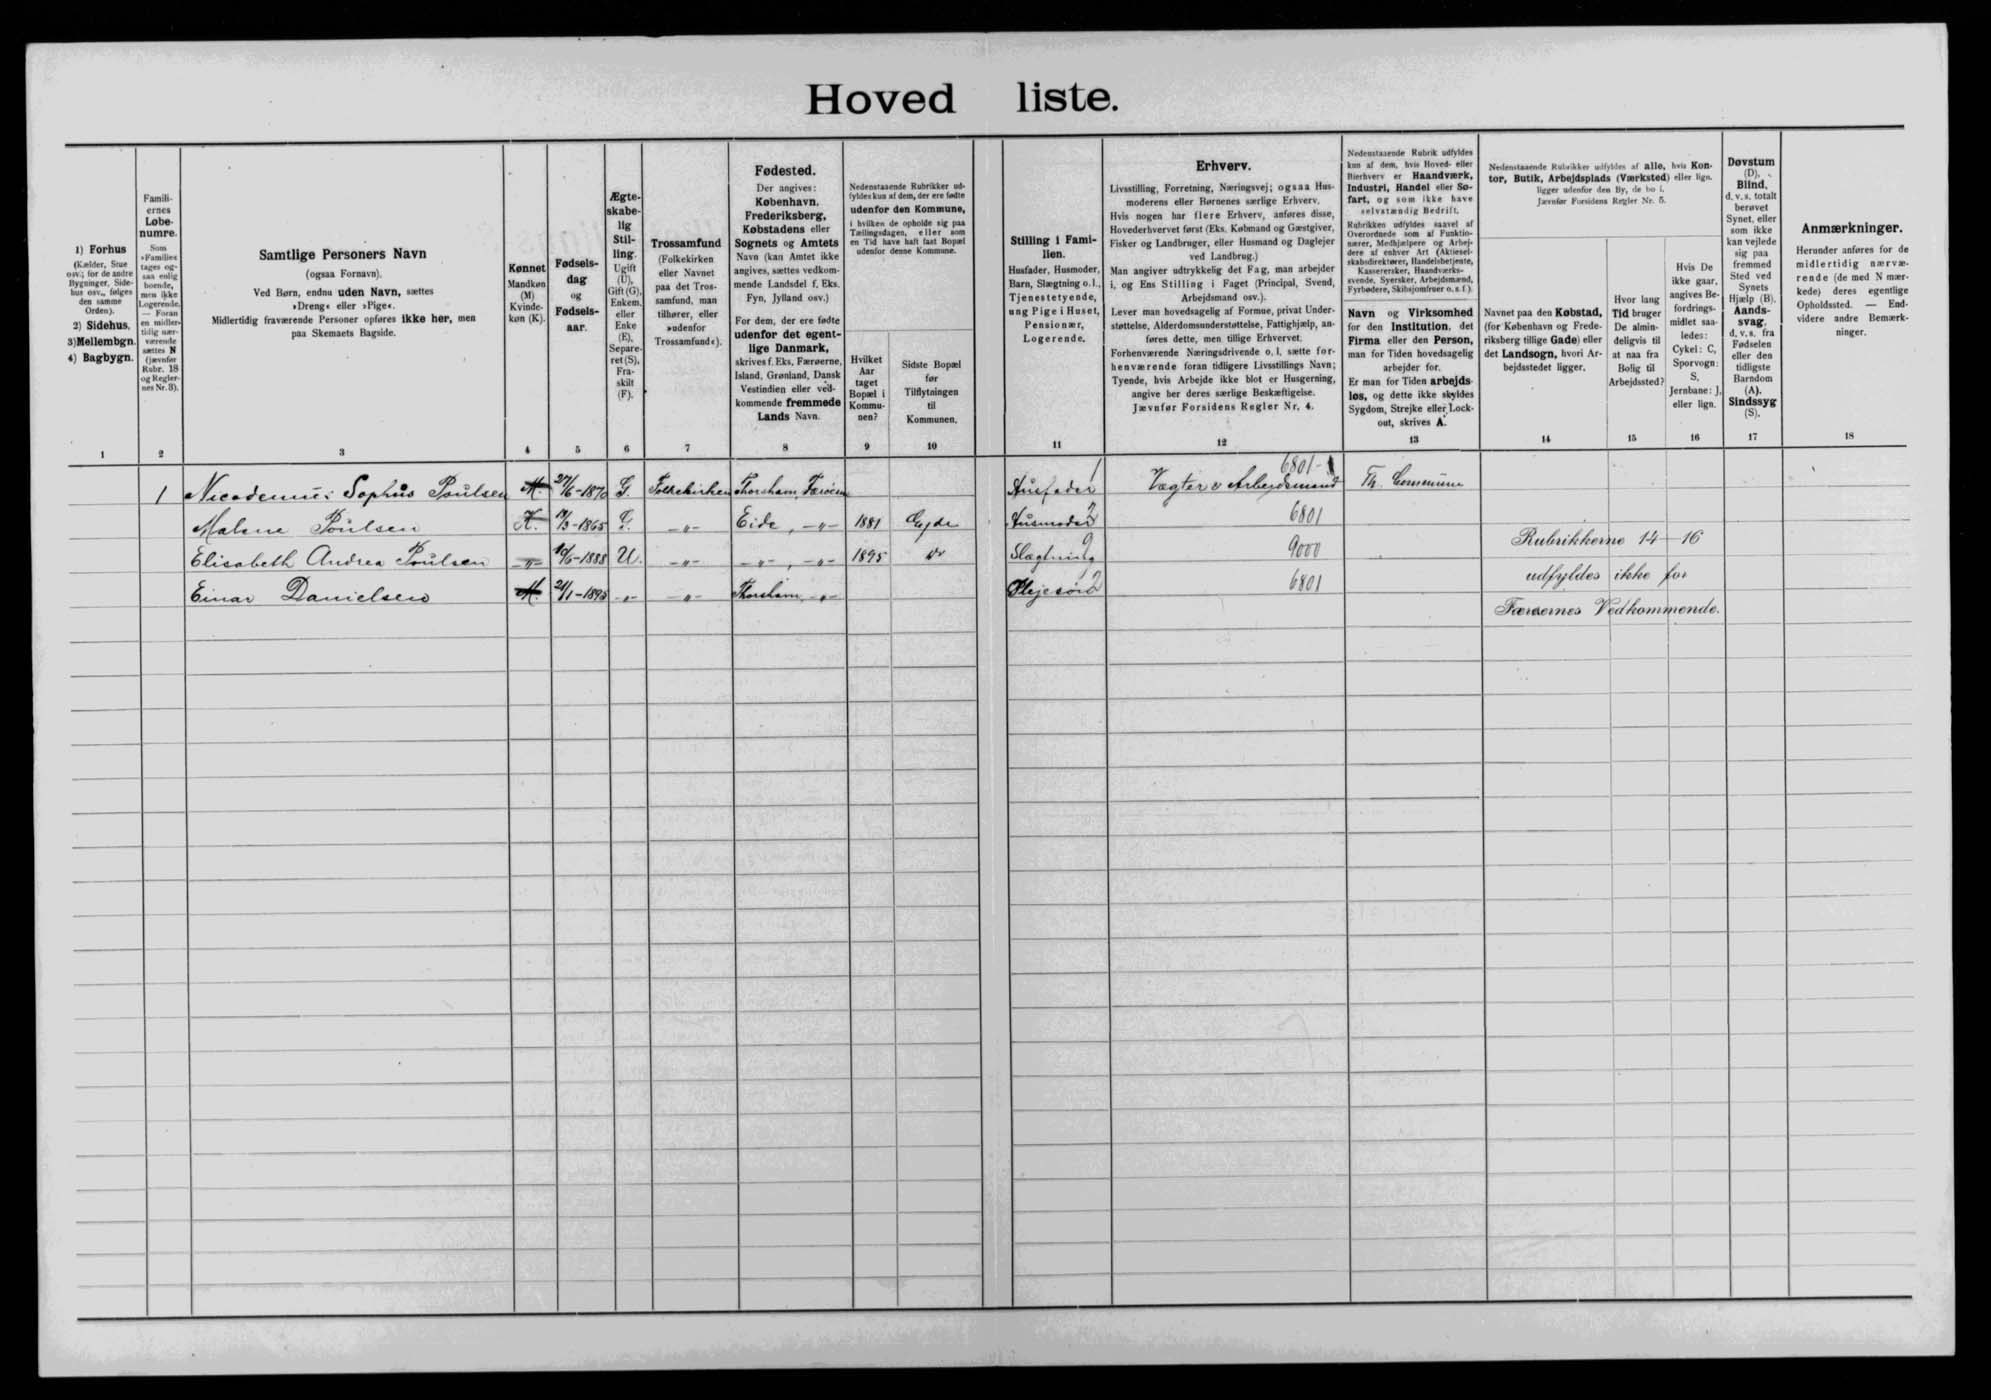 Hoved liste.
1) Forhus
(Kælder, Stue
osv.; for de andre
Bygninger, Side-
hus osv., følges
den samme
Orden).
2) Sidehus,
3) Mellembgn.
4) Bagbygn.
Famili-
ernes
Løbe-
numre.
Som
»Familie«
tages og-
saa enlig
boende,
men ikke
Logerende.
— Foran
en midler-
tidig nær-
værende
sættes N
(jævnfør
Rubr. 18
og Regler-
nes Nr. 3).
Samtlige Personers Navn
(ogsaa Fornavn).
Ved Børn, endnu uden Navn, sættes
»Dreng« eller »Pige«.
Midlertidig fraværende Personer opføres ikke her, men
paa Skemaets Bagside.
Kønnet
Mandkøn
(M)
Kvinde-
køn (K).
Fødsels-
dag
og
Fødsels-
aar.
Ægte-
skabe-
lig
Stil-
ling.
Ugift
(U),
Gift (G),
Enkem.
eller
Enke
(E),
Separe-
ret (S),
Fra-
skilt
(F).
Trossamfund
(Folkekirken
eller Navnet
paa det Tros-
samfund, man
tilhører, eller
»udenfor
Trossamfund«).
Fødested.
Der angives:
København,
Frederiksberg,
Købstadens eller
Sognets og Amtets
Navn (kan Amtet ikke
angives, sættes vedkom-
mende Landsdel f. Eks.
Fyn, Jylland osv.)
For dem, der ere fødte
udenfor det egent-
lige Danmark,
skrives f. Eks. Færøerne,
Island, Grønland, Dansk
Vestindien eller ved-
kommende fremmede
Lands Navn.
Nedenstaaende Rubrikker ud-
fyldes kun af dem, der ere fødte
udenfor den Kommune,
i hvilken de opholde sig paa
Tællingsdagen, eller som
en Tid have haft fast Bopæl
udenfor denne Kommune.
Hvilket
Aar
taget
Bopæl i
Kommu-
nen?
Sidste Bopæl
før
Tilflytningen
til
Kommunen.
Stilling i Fami-
lien.
Husfader, Husmoder,
Barn, Slægtning o. l.,
Tjenestetyende,
ung Pige i Huset,
Pensionær,
Logerende.
Erhverv.
Livsstilling, Forretning, Næringsvej; ogsaa Hus-
moderens eller Børnenes særlige Erhverv.
Hvis nogen har flere Erhverv, anføres disse,
Hovederhvervet først (Eks. Købmand og Gæstgiver,
Fisker og Landbruger, eller Husmand og Daglejer
ved Landbrug.)
Man angiver udtrykkelig det Fag, man arbejder
i, og Ens Stilling i Faget (Principal, Svend,
Arbejdsmand osv.).
Lever man hovedsagelig af Formue, privat Under-
støttelse, Alderdomsunderstøttelse, Fattighjælp, an-
føres dette, men tillige Erhvervet.
Forhenværende Næringsdrivende o. l. sætte for-
henværende foran tidligere Livsstillings Navn;
Tyende, hvis Arbejde ikke blot er Husgerning,
angive her deres særlige Beskæftigelse.
Jævnfør Forsidens Regler Nr. 4.
Nedenstaaende Rubrik udfyldes
kun af dem, hvis Hoved- eller
Bierhverv er Haandværk,
Industri, Handel eller Sø-
fart, og som ikke have
selvstændig Bedrift.
Rubrikken udfyldes saavel af
Overordnede som af Funktio-
nærer, Medhjælpere og Arbej-
dere af enhver Art (Aktiesel-
skabsdirektører, Handelsbetjente,
Kassererske, Haandværks-
svende, Syersker, Arbejdsmænd,
Fyrbødere, Skibsjomfruer o. s. f.).
Navn og Virksomhed
for den Institution, det
Firma eller den Person,
man for Tiden hovedsagelig
arbejder for.
Er man for Tiden arbejds-
løs, og dette ikke skyldes
Sygdom, Strejke eller Lock-
out, skrives A.
Nedenstaaende Rubrikker udfyldes af alle, hvis Kon-
tor, Butik, Arbejdsplads (Værksted) eller lign.
ligger udenfor den By, de bo i.
Jævnfør Forsidens Regler Nr. 5.
Navnet paa den Købstad,
(for København og Frede-
riksberg tillige Gade) eller
det Landsogn, hvori Ar-
bejdsstedet ligger.
Hvor lang
Tid bruger
De almin-
deligvis til
at naa fra
Bolig til
Arbejdssted?
Hvis De
ikke gaar,
angives Be-
fordrings-
midlet saa-
ledes:
Cykel: C,
Sporvogn:
S,
Jernbane: J,
eller lign.
Døvstum
(D),
Blind,
d. v. s. totalt
berøvet
Synet, eller
som ikke
kan vejlede
sig paa
fremmed
Sted ved
Synets
Hjælp (B),
Aands-
svag,
d. v. s. fra
Fødselen
eller den
tidligste
Barndom
(A),
Sindssyg
(S).
Anmærkninger.
Herunder anføres for de
midlertidig nærvæ-
rende (de med N mær-
kede) deres egentlige
Opholdssted. — End-
videre andre Bemærk-
ninger.
1 2 3 4 5 6 7 8 9 10 11 12 13 14 15 16 17 18
1 Nicodemus Sophus Poulsen M. 27/6-1870 G. Folkekirken Thorshavn, Færöerne Husfader 1 Vægter & Arbejdsmand 6801-1 Th. Commune
Malene Poulsen K. /3-1865 G. -"- Eide, -"- 1881 Ejde Husmoder 2 6801
Elisabeth Andrea Poulsen -"- 10/6-1888 U. -"- -"-, -"- 1895 do Slægtning 9 9000
Einar Danielsen M. 21/1-1895 -"- -"- Thorshavn, -"- Plejesön 2 6801
Rubrikkerne 14-16
udfyldes ikke for
Færøernes Vedkommende.